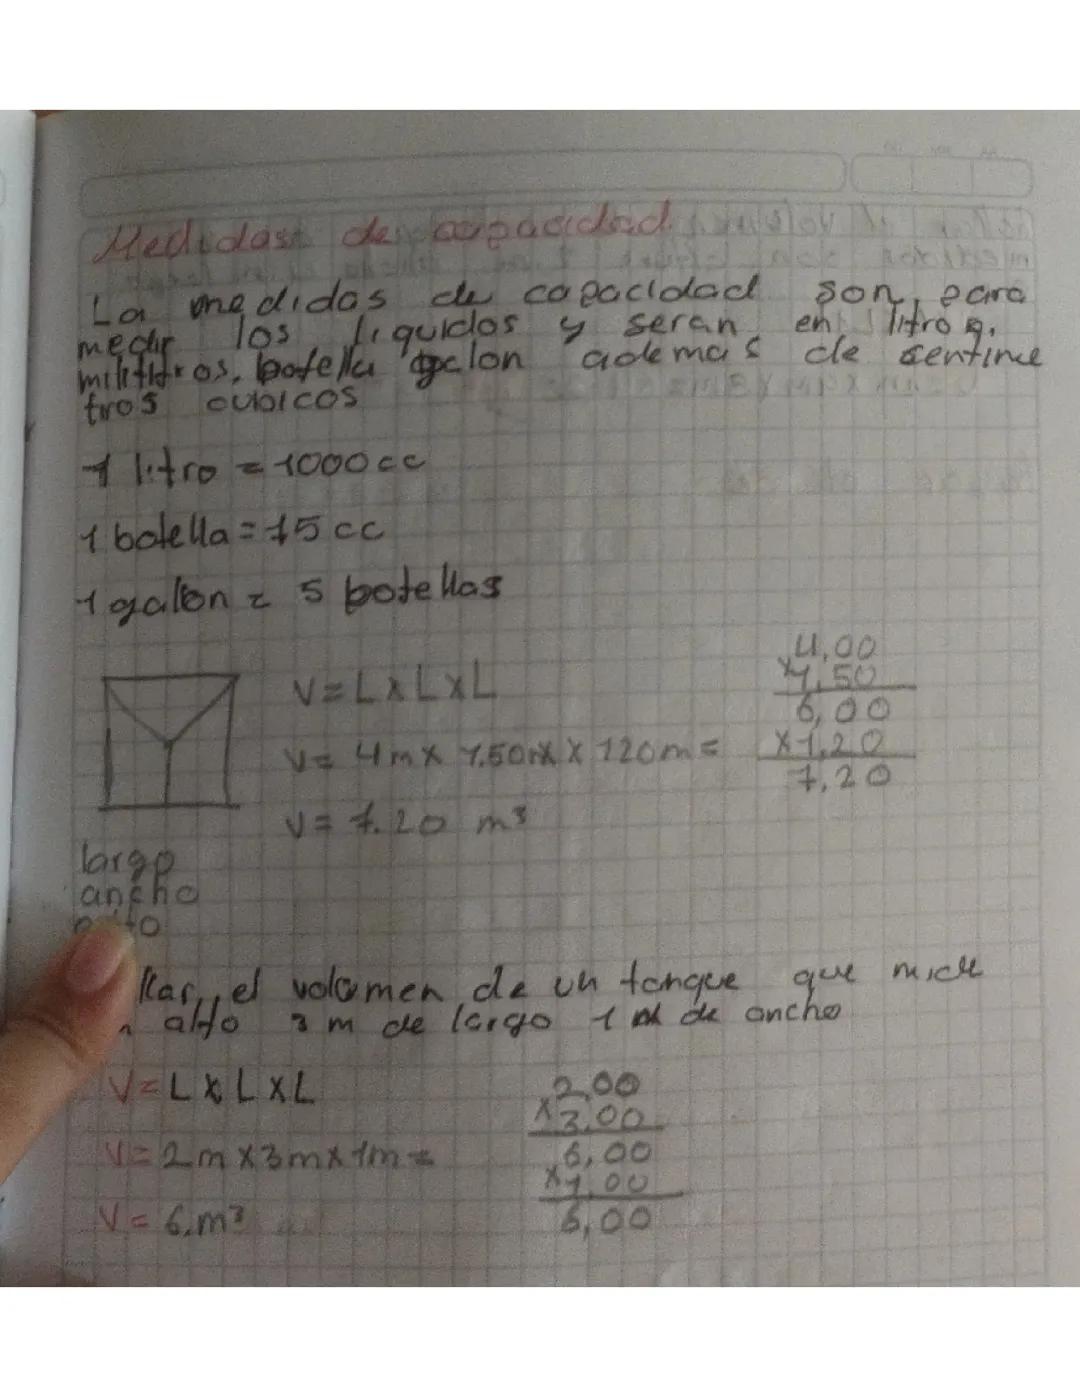 Medidas de capacidad.
La medidas de capacidad son, para
medir los liquidos y seran en litros,
mililitros, botella galon ademas de sentime
tros cubicos
1 litro = 1000cc
1 botella = 75 cc
1 galon = 5 botellas
V = L x L x L
V = 4m x 1.50m x 120m =
V = 7.20 m³
4,00
x 1,50
6,00
x 1,20
7,20
largo
ancho
alto
llar, el volumen de un tanque que mide
alto 3 m de largo 1 m de ancho
V = L x L x L
V = 2m x 3m x 1m =
V = 6.m³
2,00
x 3,00
6,00
x 1,00
6,00